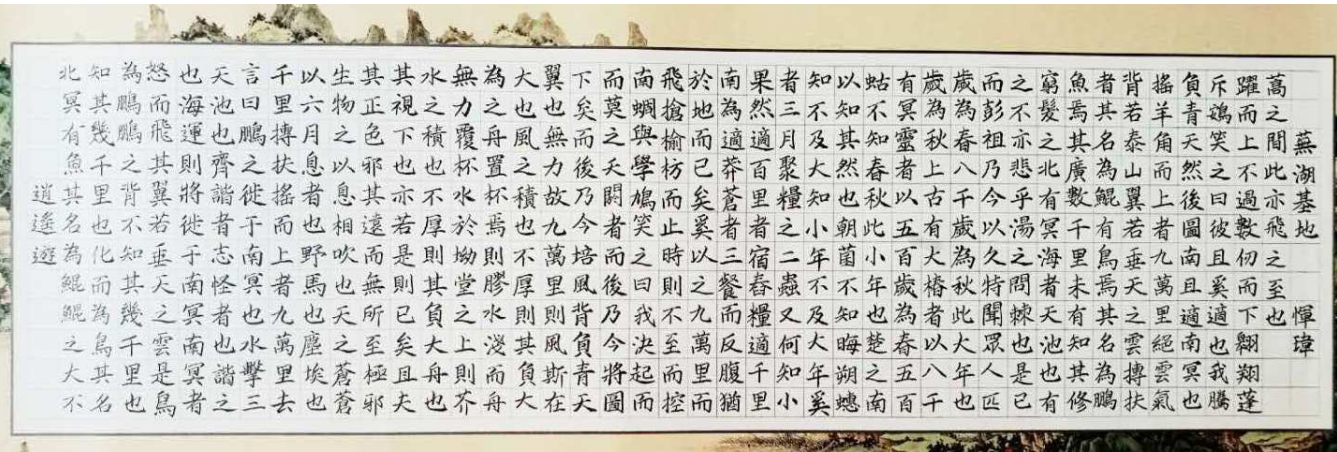 逍遙遊
北冥有魚其名為鯤鯤之大不
知其幾千里也化而為鳥其名
為鵬鵬之背不知其幾千里也
怒而飛其翼若垂天之雲是鳥
也海運則將徙于南冥南冥者
天池也齊諧者志怪者也諧之
言曰鵬之徙于南冥也水擊三
千里摶扶搖而上者九萬里去
以六月息者也野馬也塵埃也
生物之以息相吹也天之蒼蒼
其正色邪其遠而無所至極邪
其視下也亦若是則已矣且夫
水之積也不厚則其負大舟也
無力覆杯水於坳堂之上則芥
為之舟置杯焉則膠水淺而舟
大也風之積也不厚則其負大
翼也無力故九萬里則風斯在
下矣而後乃今培風背負青天
而莫之夭閼者而後乃今將圖
南蜩與學鳩笑之曰我決起而
飛搶榆枋而止時則不至而控
於地而已矣奚以之九萬里而
南為適莽蒼者三餐而反腹猶
果然適百里者宿舂糧適千里
者三月聚糧之二蟲又何知小
知不及大知小年不及大年奚
以知其然也朝菌不知晦朔蟪
蛄不知春秋此小年也楚之南
有冥靈者以五百歲為春五百
歲為秋上古有大椿者以八千
歲為春八千歲為秋此大年也
而彭祖乃今以久特聞眾人匹
之不亦悲乎湯之問棘也是已
窮髮之北有冥海者天池也有
魚焉其廣數千里未有知其修
者其名為鯤有鳥焉其名為鵬
背若泰山翼若垂天之雲摶扶
搖羊角而上者九萬里絕雲氣
負青天然後圖南且適南冥也
斥鴳笑之曰彼且奚適也我騰
躍而上不過數仞而下翱翔蓬
蒿之間此亦飛之至也
蕪湖基地 惲瑋